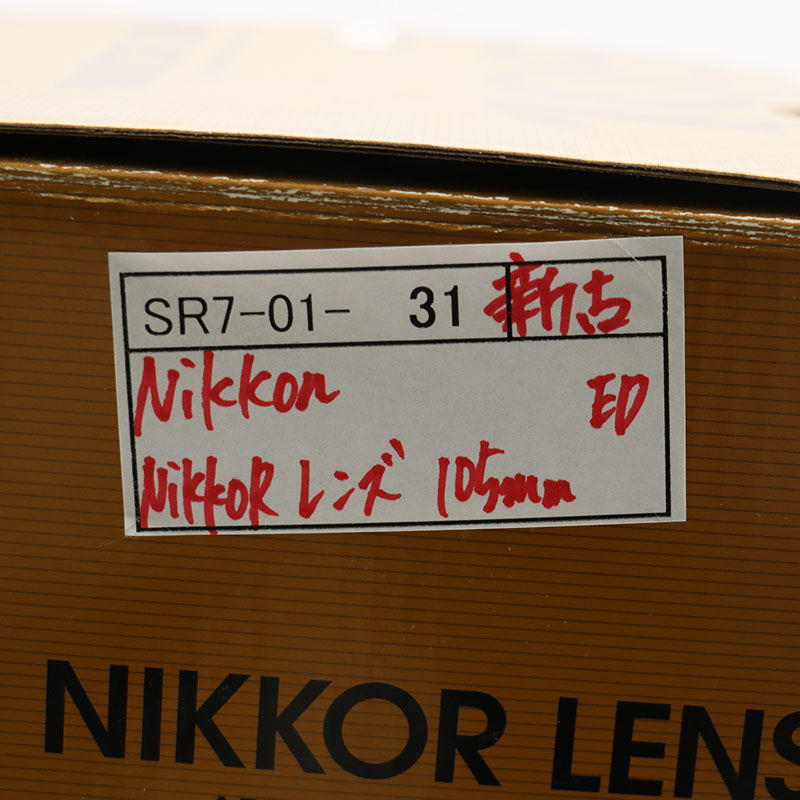 SR7-01- 31 新古
Nikkon ED
NikkoR レンズ 105mm
NIKKOR LENS